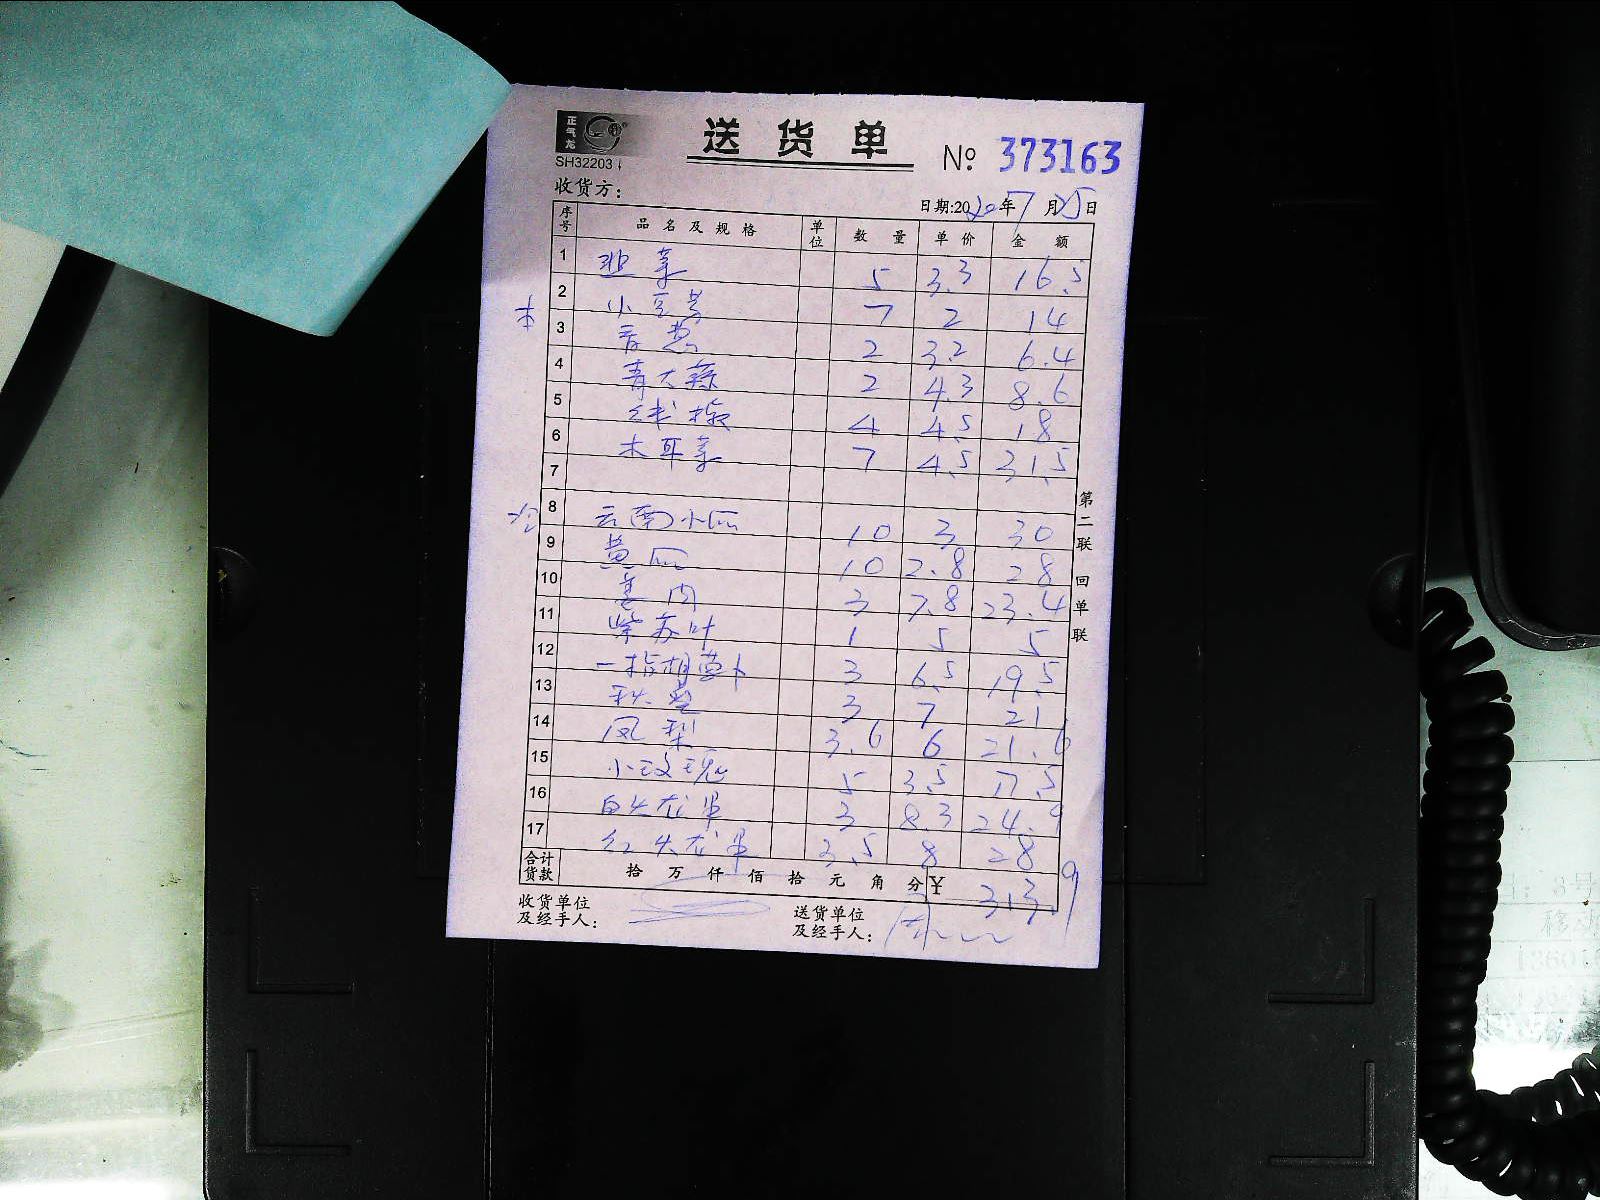 正气龙
送货单
№ 373163
SH32203
收货方:
日期:2020年7月25日
序号 品名及规格 单位 数量 单价 金额
1 韭菜 5 3.3 16.5
2 小豆芽 7 2 14
本
3 香葱 2 3.2 6.4
4 青大蒜 2 4.3 8.6
5 线椒 4 4.5 18
6 木耳菜 7 4.5 31.5
7
8 云南小瓜 10 3 30
9 黄瓜 10 2.8 28
10 姜肉 3 7.8 23.4
11 紫苏叶 1 5 5
12 一指胡萝卜 3 6.5 19.5
13 秋葵 3 7 21
14 凤梨 3.6 6 21.6
15 小玫瑰 5 3.5 17.5
16 白火龙果 3 8.3 24.9
17 红火龙果 3.5 8 28
合计货款 拾 万 仟 佰 拾 元 角 分 ¥ 313.9
收货单位及经手人:
送货单位及经手人:
第二联 回单联